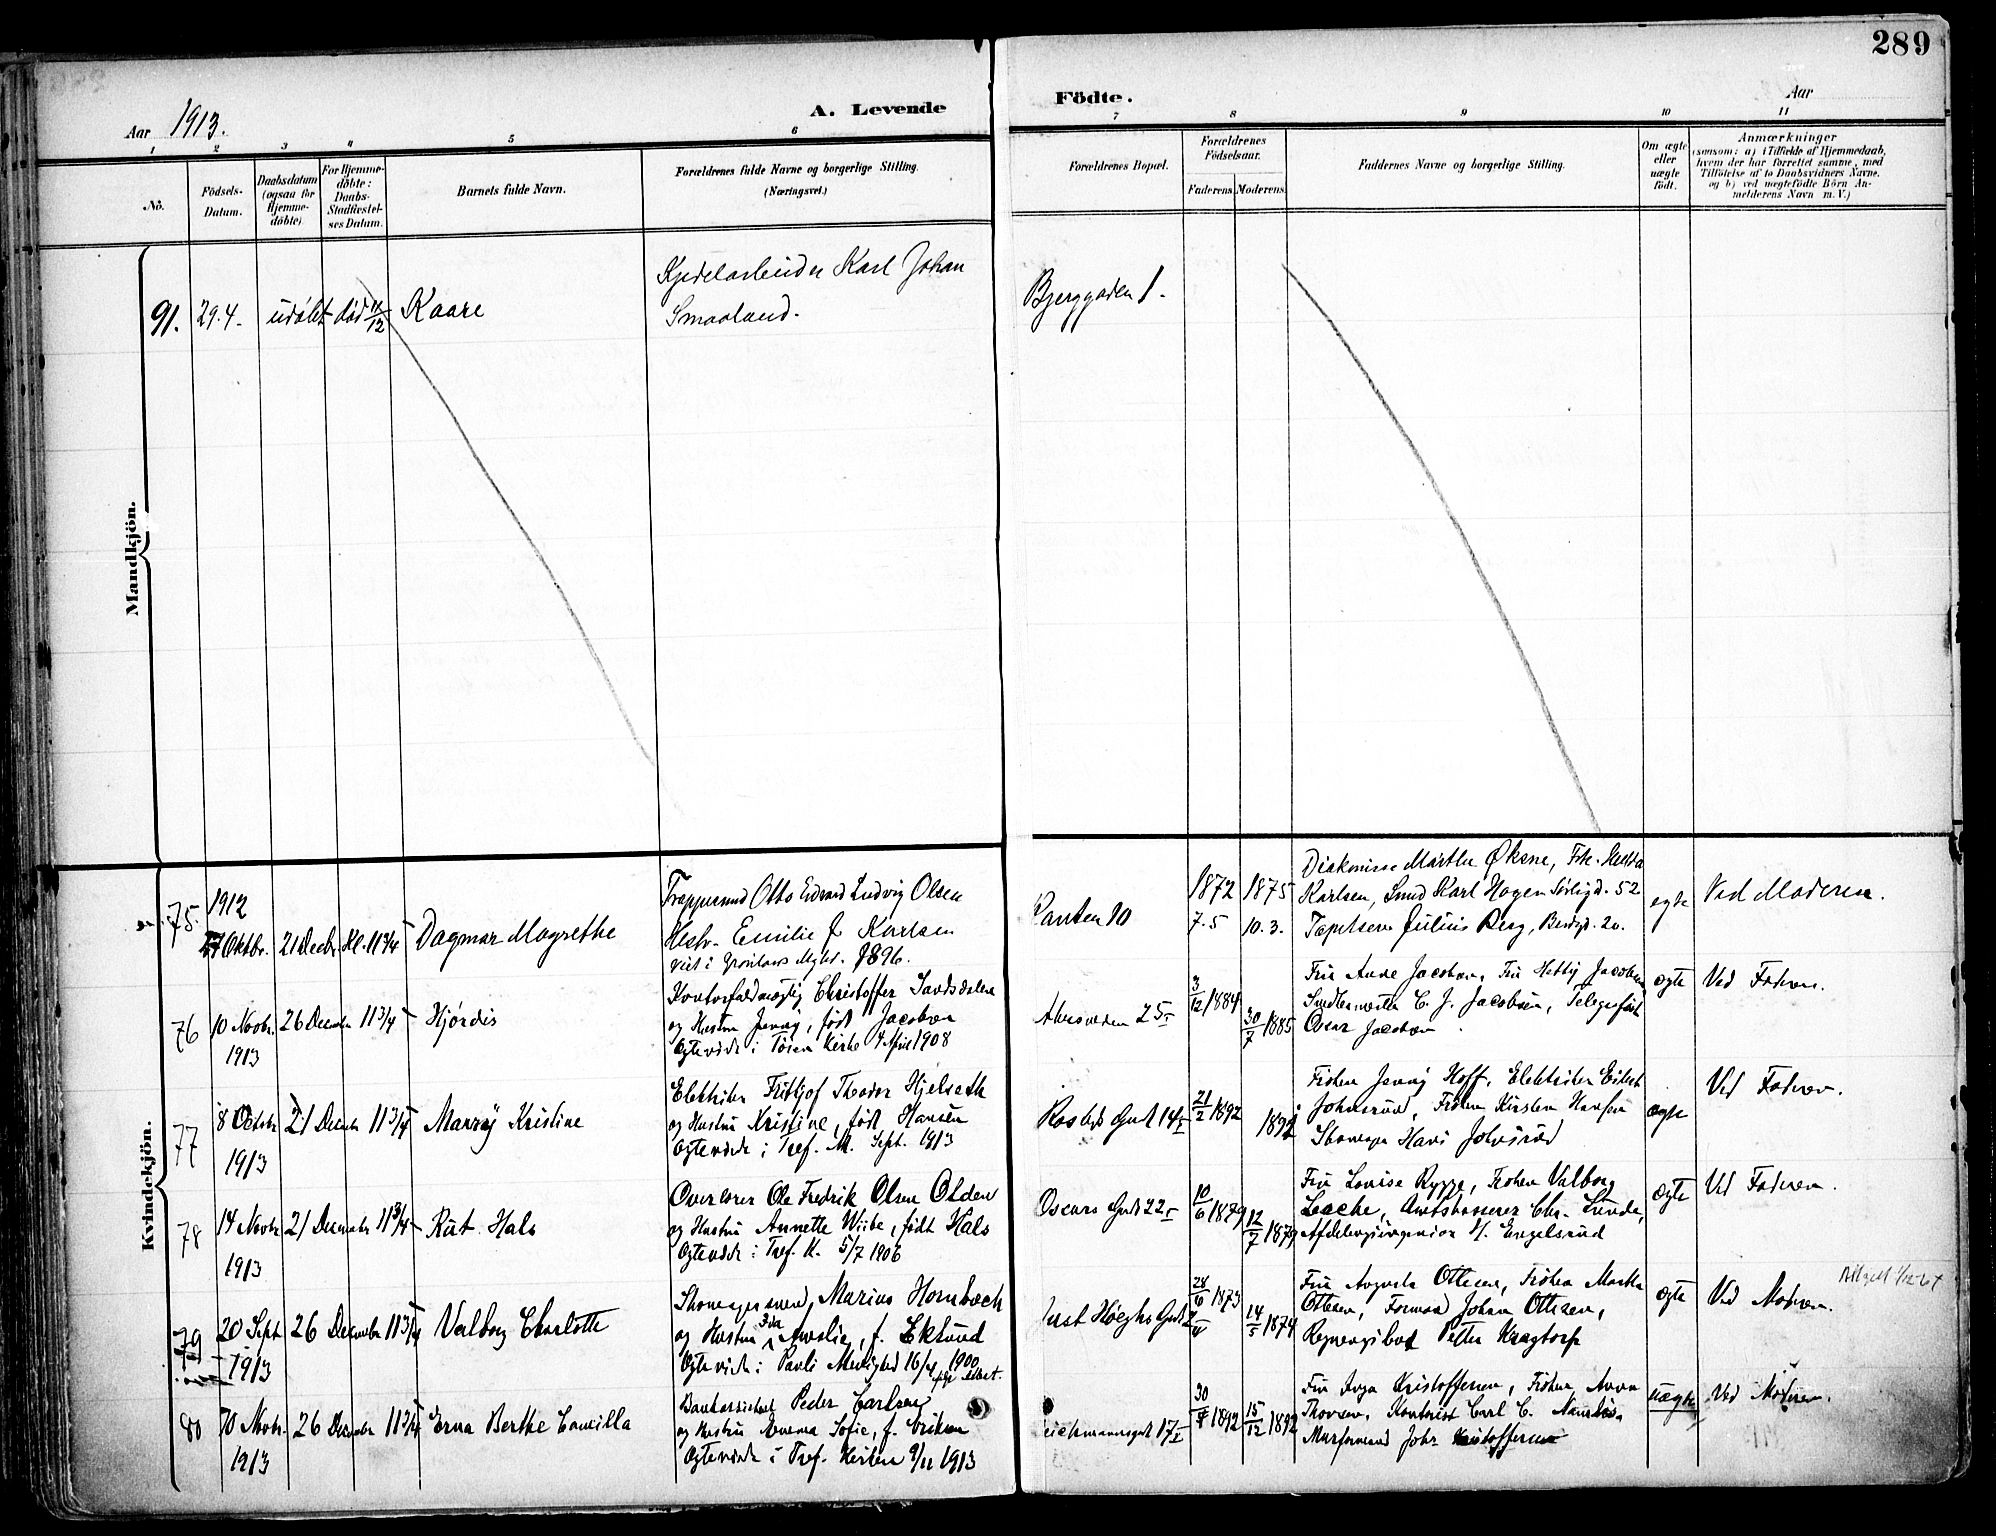 289
Aar 1913.
A. Levende Födte.
Aar
1 2 3 4 5 6 7 8 9 10 11
No.
Födsels-Datum.
Daabsdatum (ogsaa for Hjemme-döbte)
For Hjemme-döbte: Daabs-Stadfæstel-ses Datum.
Barnets fulde Navn.
Forældrenes fulde Navne og borgerlige Stilling. (Næringsvei.)
Forældrenes Bopæl.
Forældrenes Födselsaar.
Faderens. Moderens.
Faddernes Navne og borgerlige Stilling.
Om ægte eller uægte födt.
Anmærkninger
(saasom: a) i Tilfælde af Hjemmedaab, hvem der har forrettet samme, med Tilföielse af to Daabsvidners Navne, og b) ved uægtefödte Börn An-melderens Navn m. V.)
Mandkjön.
91. 29.4. udøbt død 11/12 Kaare
Kjedelarbeider Karl Johan
Smaaland.
Bjerggaden 1.
Kvindekjön.
75. 1912
Oktbr. 21 Decbr. Kl. 11 3/4 Dagmar Magrethe
Otto Edvard Ludvig Olsen
Hstr. Emilie f. Karlsen
viet i Grønlands Mghd. 1896.
10
1872 7.5 1875 10.3.
Diakonisse Martha Øksne, Frk. Hulda
Karlsen, Smed Karl Hagen Sørligd. 52
Julius Berg, 20.
egte
Ved Moderen.
76 10 Novbr. 1913 26 December 11 3/4 Hjørdis
Kontorfuldmægtig Christoffer
og Hustru Jenny, født Jacobsen
Ægteviede i Kirke April 1908
Akersveien 25 I
3/12 1884 30/7 1885
Fru Anne Jacobsen, Fru Hetty Jacobsen
C. J. Jacobsen,
Oscar Jacobsen
ægte
Ved Faderen.
77 8 Octbr 1913 21 Decbr 11 3/4 Kristine
Elektriker Fritjof Theodor Hjelseth
og Hustru Kristine, født Hansen
Ægteviede i Tref. M. Sept. 1913
14 I
21/2 1892 1892
Frøken Jenny Hoff, Elektriker
Johnsrud, Frøken Kirsten Hansen
Hans Johnsrud
ægte
Ved Faderen.
78 14 Novbr 1913 21 December 11 3/4 Rut Hals
Overlærer Ole Fredrik Olsen Olden
og Hustru Annette Wiibe, født Hals
Ægteviede i Tref. K. 5/7 1906
Oscars Gade 22 I
10/6 1879 12/7
Fru Lovise Rygge, Frøken Valborg
Chr. Lunde,
H. Engelsrud
ægte
Ved Faderen.
79 20 Sept 1913 26 December 11 3/4 Valborg Charlotte
Marius Hornbæch
og Hustru Ida Amalie, f. Eklund
Ægteviede i Pauli Menighed 16/4 1900
Just Høeghs Gade
28/6 1873 14/5 1874
Fru Augusta Ottesen, Frøken Martha
Ottesen, Formand Johan Ottesen,
Petter Kragtorp
ægte
Ved Moderen.
80 10 Novbr. 1913 26 December 11 3/4 Erna Berthe Camilla
Peder Carlsen
og Hustru Sofie, f. Eriksen
Ægteviede i Tref. Kirken 9/11 1913
17 I
30/8 1892 15/12 1892
Fru Inga Kristoffersen, Frøken Anna
Thorsen, Kontorist Carl C.
Johs Kristoffersen
uægte
Ved Moderen.